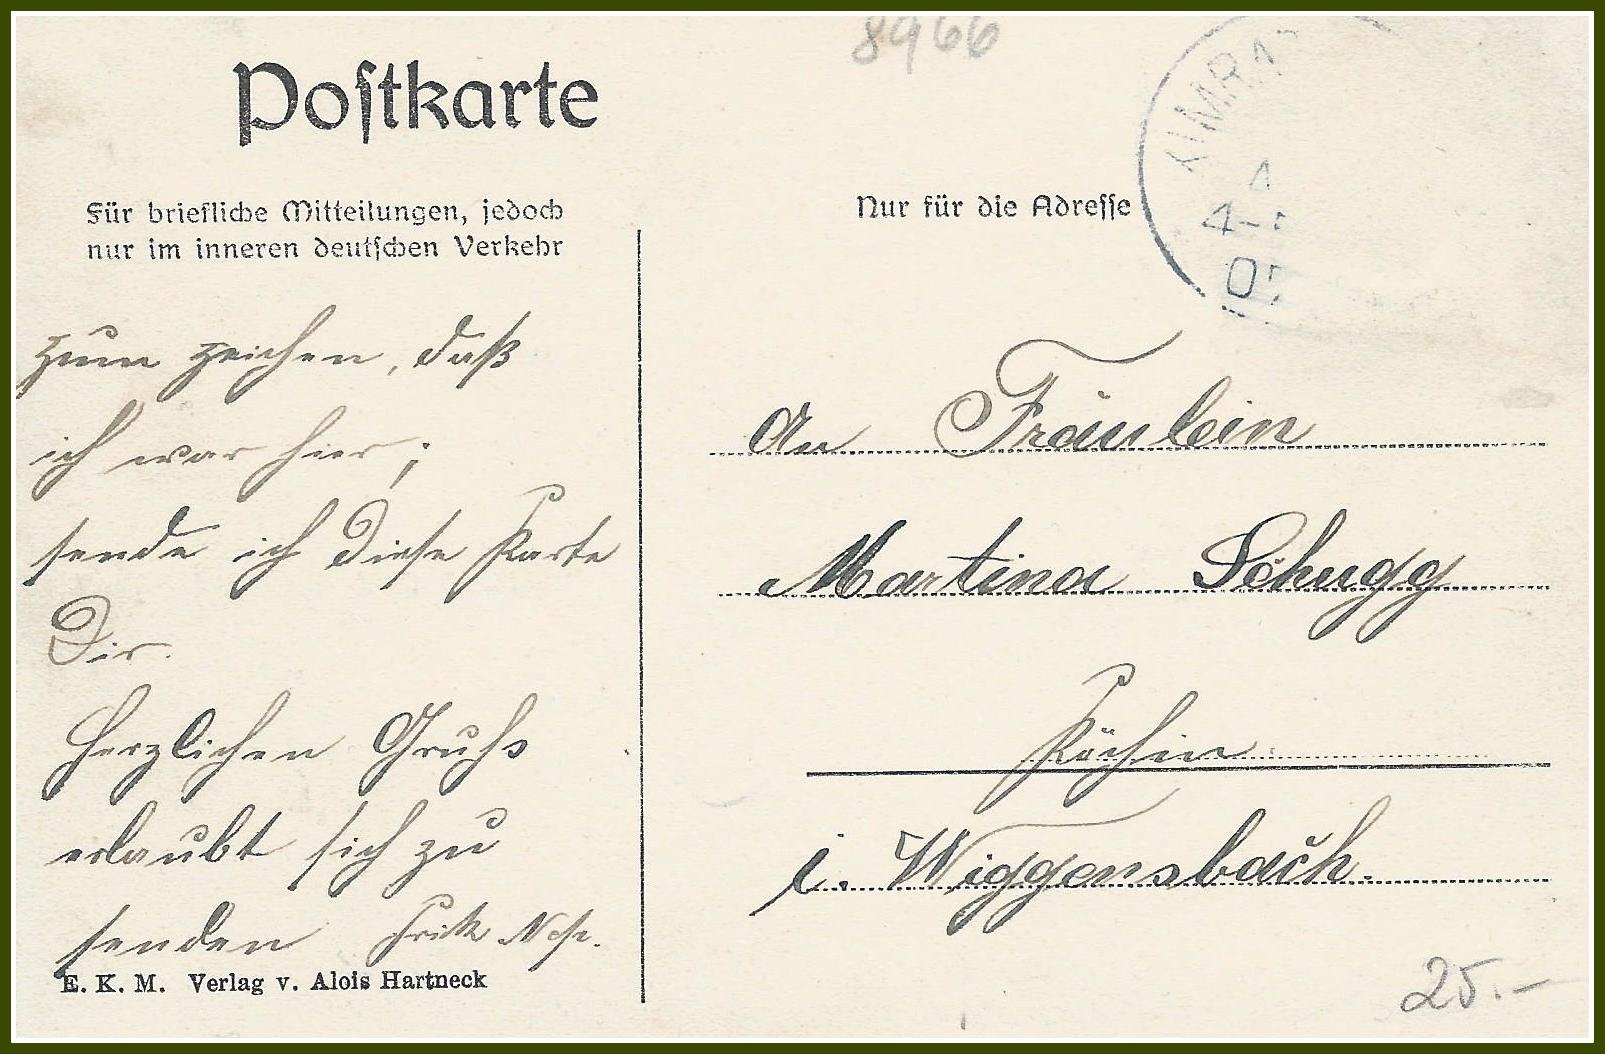 8966
Postkarte
Für briefliche Mitteilungen, jedoch
nur im inneren deutschen Verkehr
Nur für die Adresse
KIMRA
4
4-
07
zum zeichen, daß
ich war hier;
sende ich Diese Karte
Dir.
Herzlichen Gruhs
erlaubt sich zu
senden Fritz
E. K. M. Verlag v. Alois Hartneck
An Fräulein
Martina Schugg
Köchin
i. Wiggensbach.
25.-